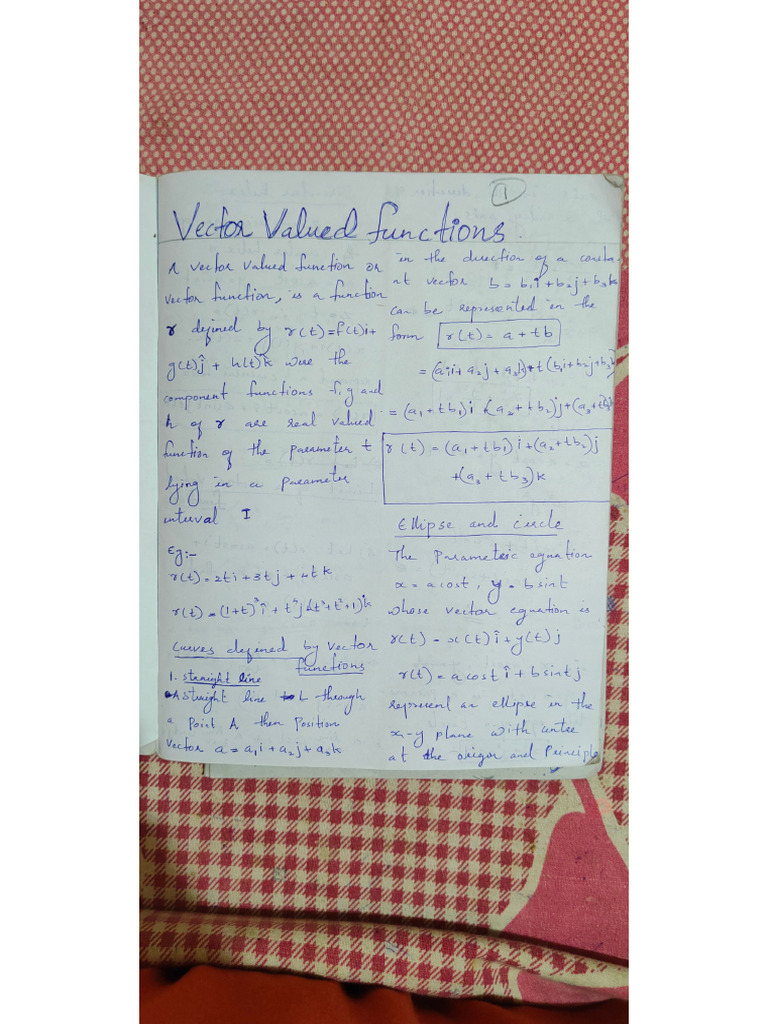 1
Vector Valued functions.
A vector valued function or
vector function, is a function
r defined by r(t)=f(t)i+
g(t)ĵ + h(t)k were the
component functions f, g and
h of r are real valued
function of the parameter t
lying in a parameter
interval I
Eg:-
r(t)=2ti+3tj+4tk
r(t)=(1+t)³î + t⁴j+(t⁴+t²+1)k
Curves defined by vector
functions
1. straight line
A straight line L through
a point A then position
vector a = a₁i+a₂j+a₃k
in the direction of a consta-
nt vector b = b₁i+b₂j+b₃k
can be represented in the
form r(t) = a+tb
=(a₁i+a₂j+a₃k)+t(b₁i+b₂j+b₃k)
=(a₁+tb₁)i+(a₂+tb₂)j+(a₃+tb₃)
r(t)=(a₁+tb₁)i+(a₂+tb₂)j
+(a₃+tb₃)k
Ellipse and circle
The parametric equation
x = a cost, y = b sint
whose vector equation is
r(t) = x(t)î+y(t)j
r(t)=a cost î + b sint j
represent an ellipse in the
x-y plane with centre
at the origin and Principle